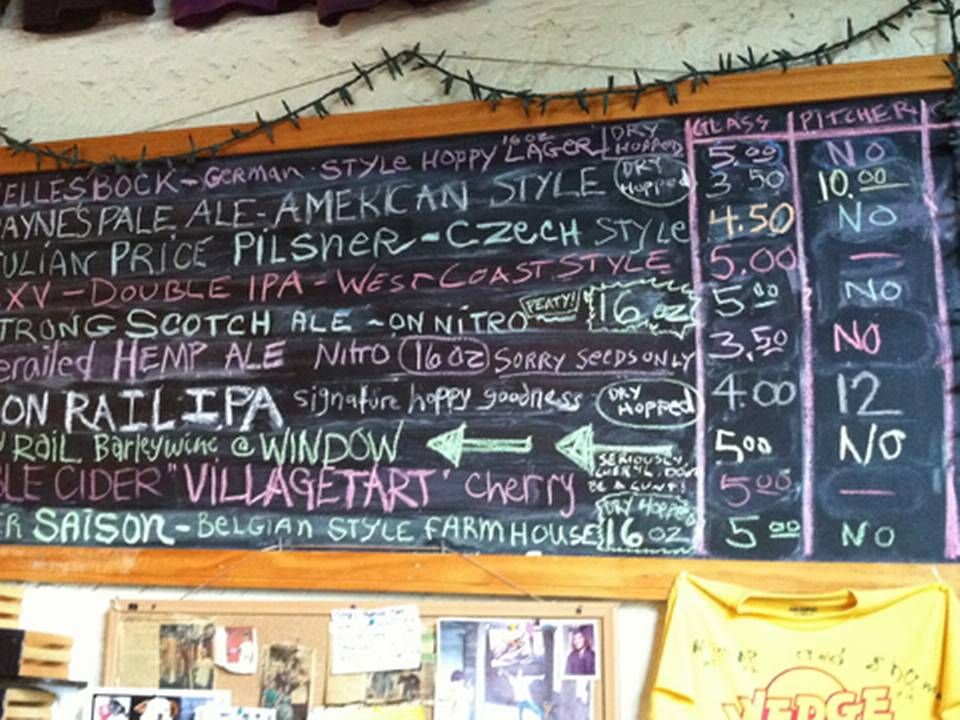 GLASS PITCHER
ELLESBOCK - German STYLE HOPPY LAGER 16 oz DRY HOPPED 5.00 NO
AYNE'S PALE ALE - AMERICAN STYLE DRY HOPPED 3.50 10.00
ULIAN PRICE PILSNER - CZECH STYLE 4.50 NO
XV - DOUBLE IPA - WEST COAST STYLE 5.00 —
TRONG SCOTCH ALE ~ ON NITRO PEATY! 16 oz 5.00 NO
erailed HEMP ALE NITRO 16 oz SORRY SEEDS ONLY 3.50 NO
ON RAIL IPA signature hoppy goodness DRY HOPPED 4.00 12
RAIL Barleywine @ WINDOW 5.00 N/O
SERIOUSLY,
BLE CIDER "VILLAGE TART" cherry 5.00 —
ER SAISON - BELGIAN STYLE FARMHOUSE DRY HOPPED 16 oz 5.00 NO
WEDGE